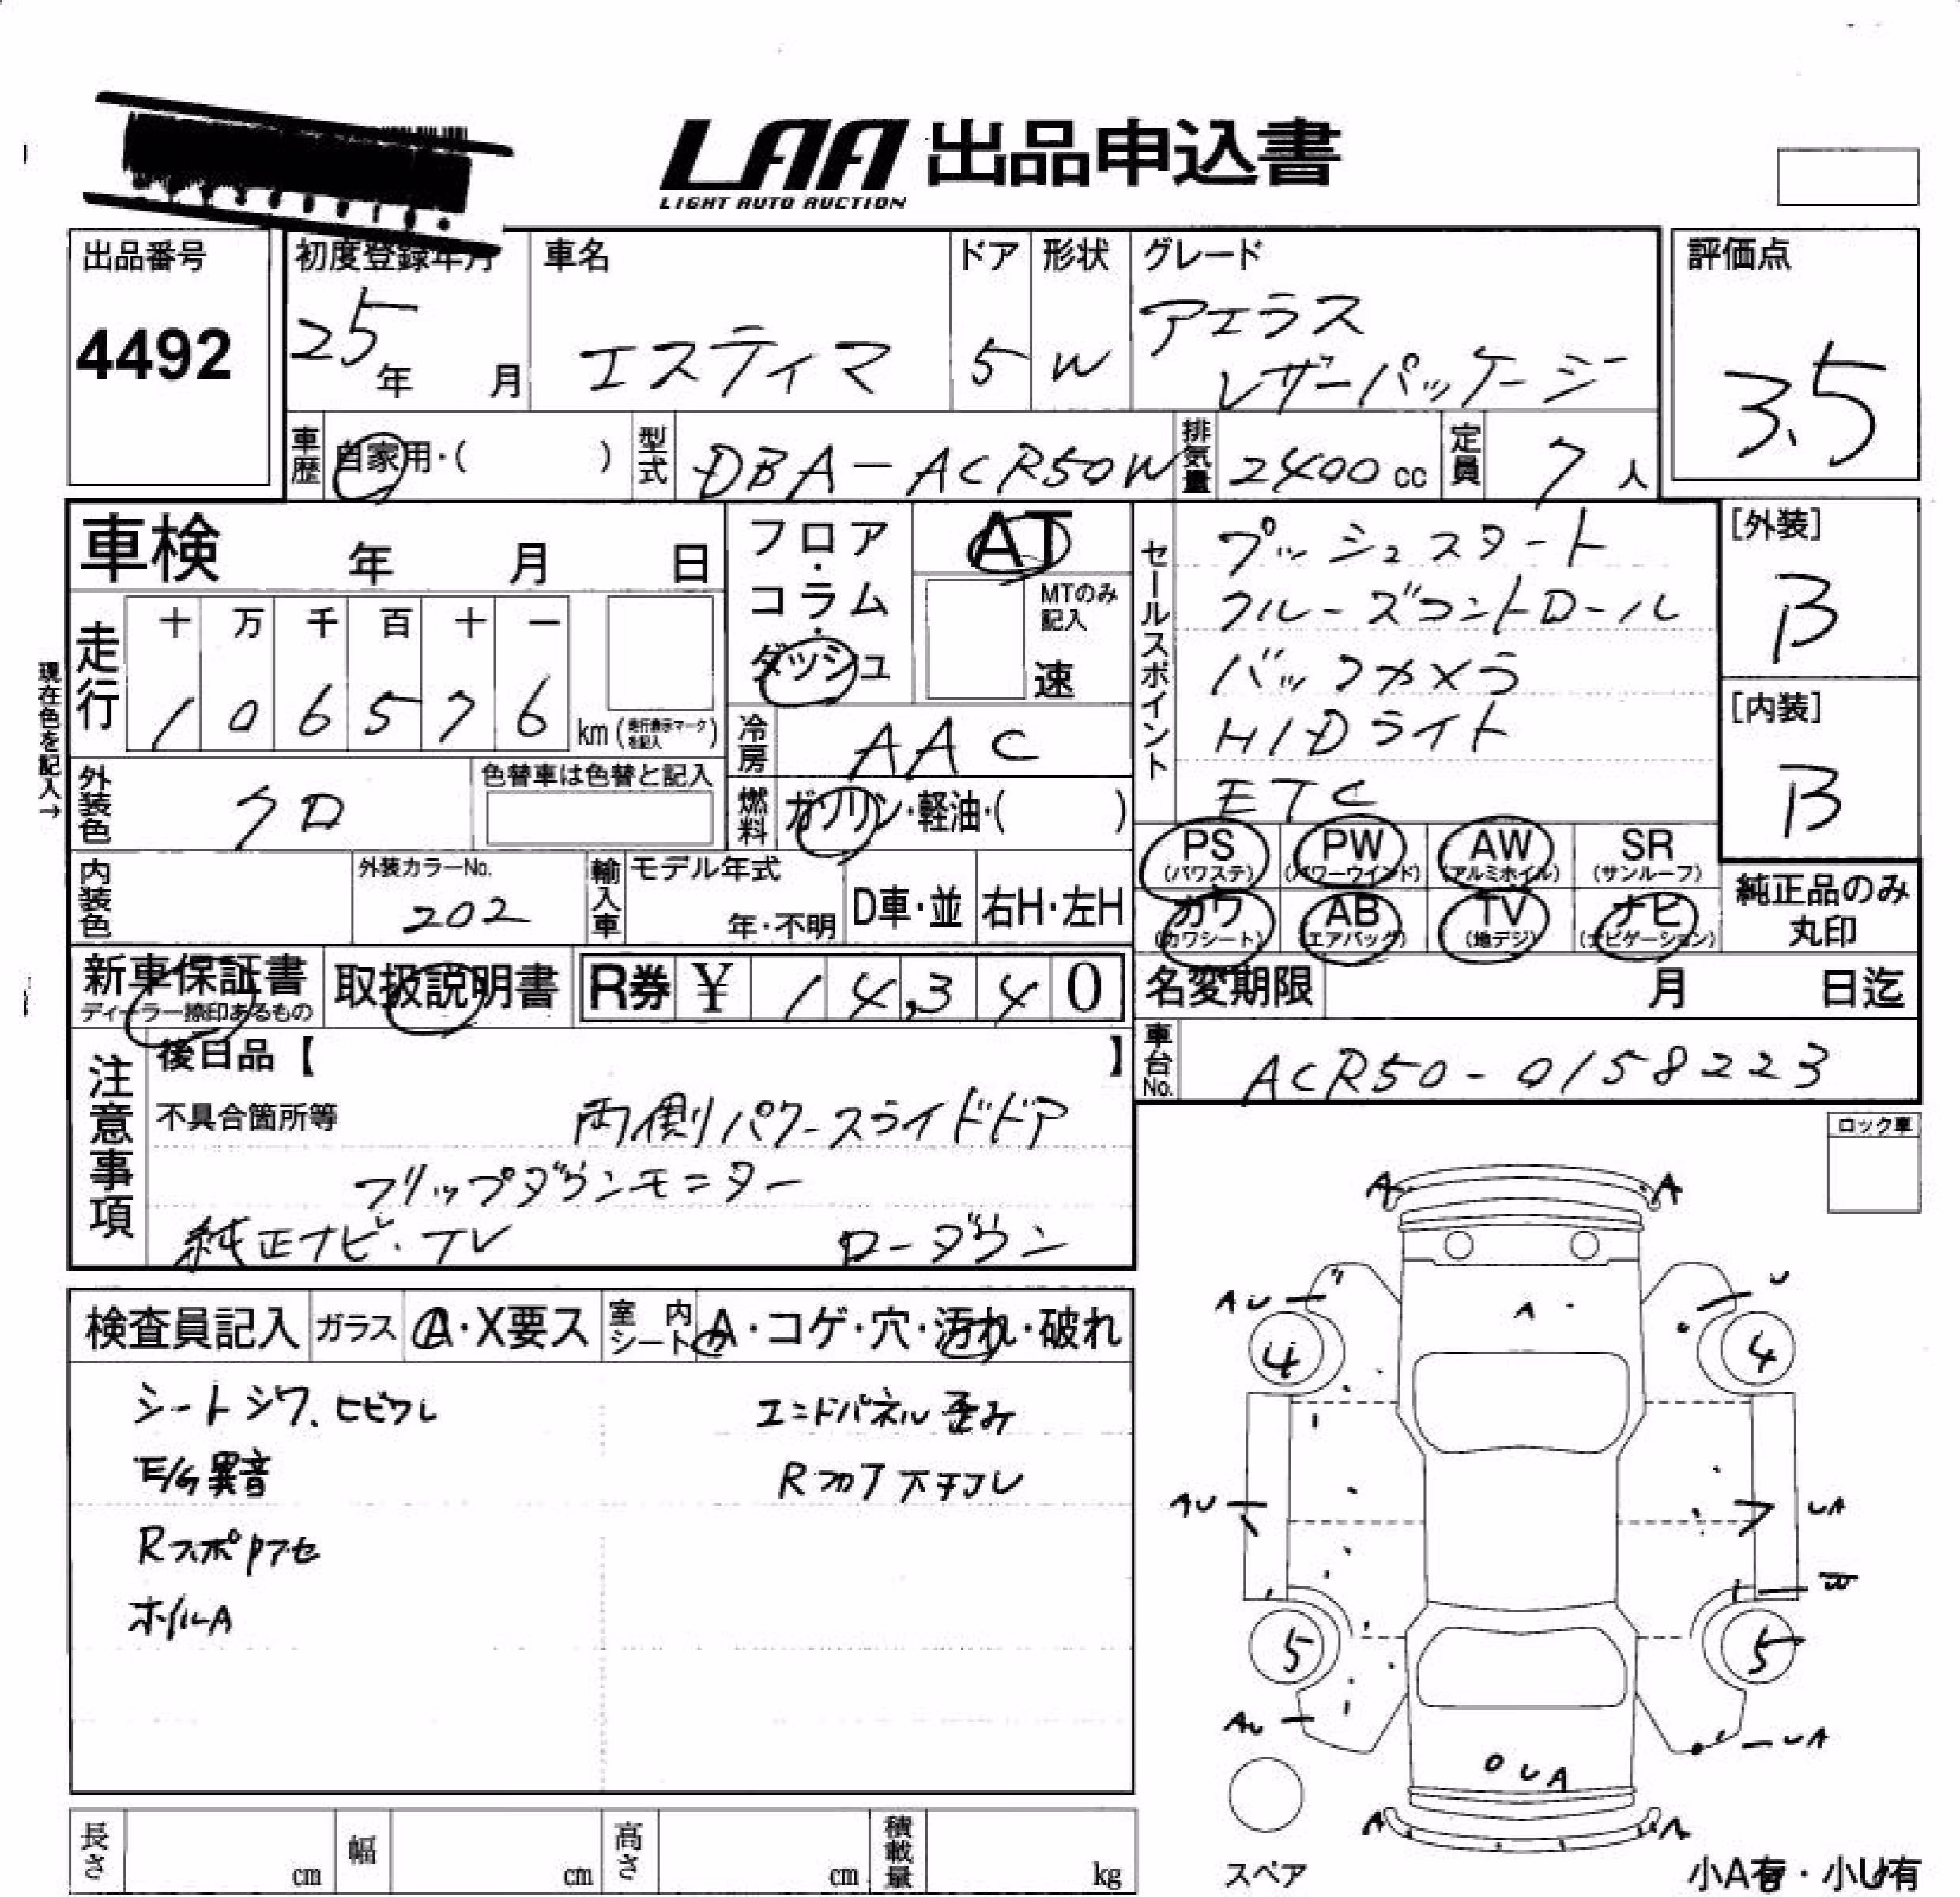 LAA 出品申込書
LIGHT AUTO AUCTION
出品番号
4492
初度登録年月
25年 月
車名
エスティマ
ドア
5
形状
W
グレード
アエラス
レザーパッケージ
評価点
3.5
車歴 自家用・( )
型式 DBA-ACR50W
排気量 2400cc
定員 7人
車検 年 月 日
フロア・コラム・ダッシュ
AT
MTのみ記入
速
走行 十 万 千 百 十 一
1 0 6 5 7 6 km (走行表示マークを記入)
現在色を記入→
冷房 AAC
外装色 クロ
色替車は色替と記入
燃料 ガソリン・軽油・( )
セールスポイント
プッシュスタート
クルーズコントロール
バックカメラ
HIDライト
ETC
[外装]
B
[内装]
B
内装色
外装カラーNo.
202
輸入車 モデル年式
年・不明
D車・並
右H・左H
PS (パワステ) PW (パワーウインド) AW (アルミホイル) SR (サンルーフ)
カワ (カワシート) AB (エアバッグ) TV (地デジ) ナビ (ナビゲーション)
純正品のみ
丸印
新車保証書
ディーラー捺印あるもの
取扱説明書
R券 ¥ 14,340
名変期限 月 日迄
車台No. ACR50-0158223
注意事項
後日品【 】
不具合箇所等 両側パワースライドドア
フリップダウンモニター
純正ナビ・TV ローダウン
ロック車
検査員記入 ガラス A・X要ス 室内シート A・コゲ・穴・汚れ・破れ
シートシワ、ヒビワレ エンドパネル歪み
E/G異音 Rフロア
Rスポ
ホイルA
A A
AU U
A
4 4
AU UA
W
5 5
AU UA
UA
A A
スペア
小A有・小U有
長さ cm 幅 cm 高さ cm 積載量 kg